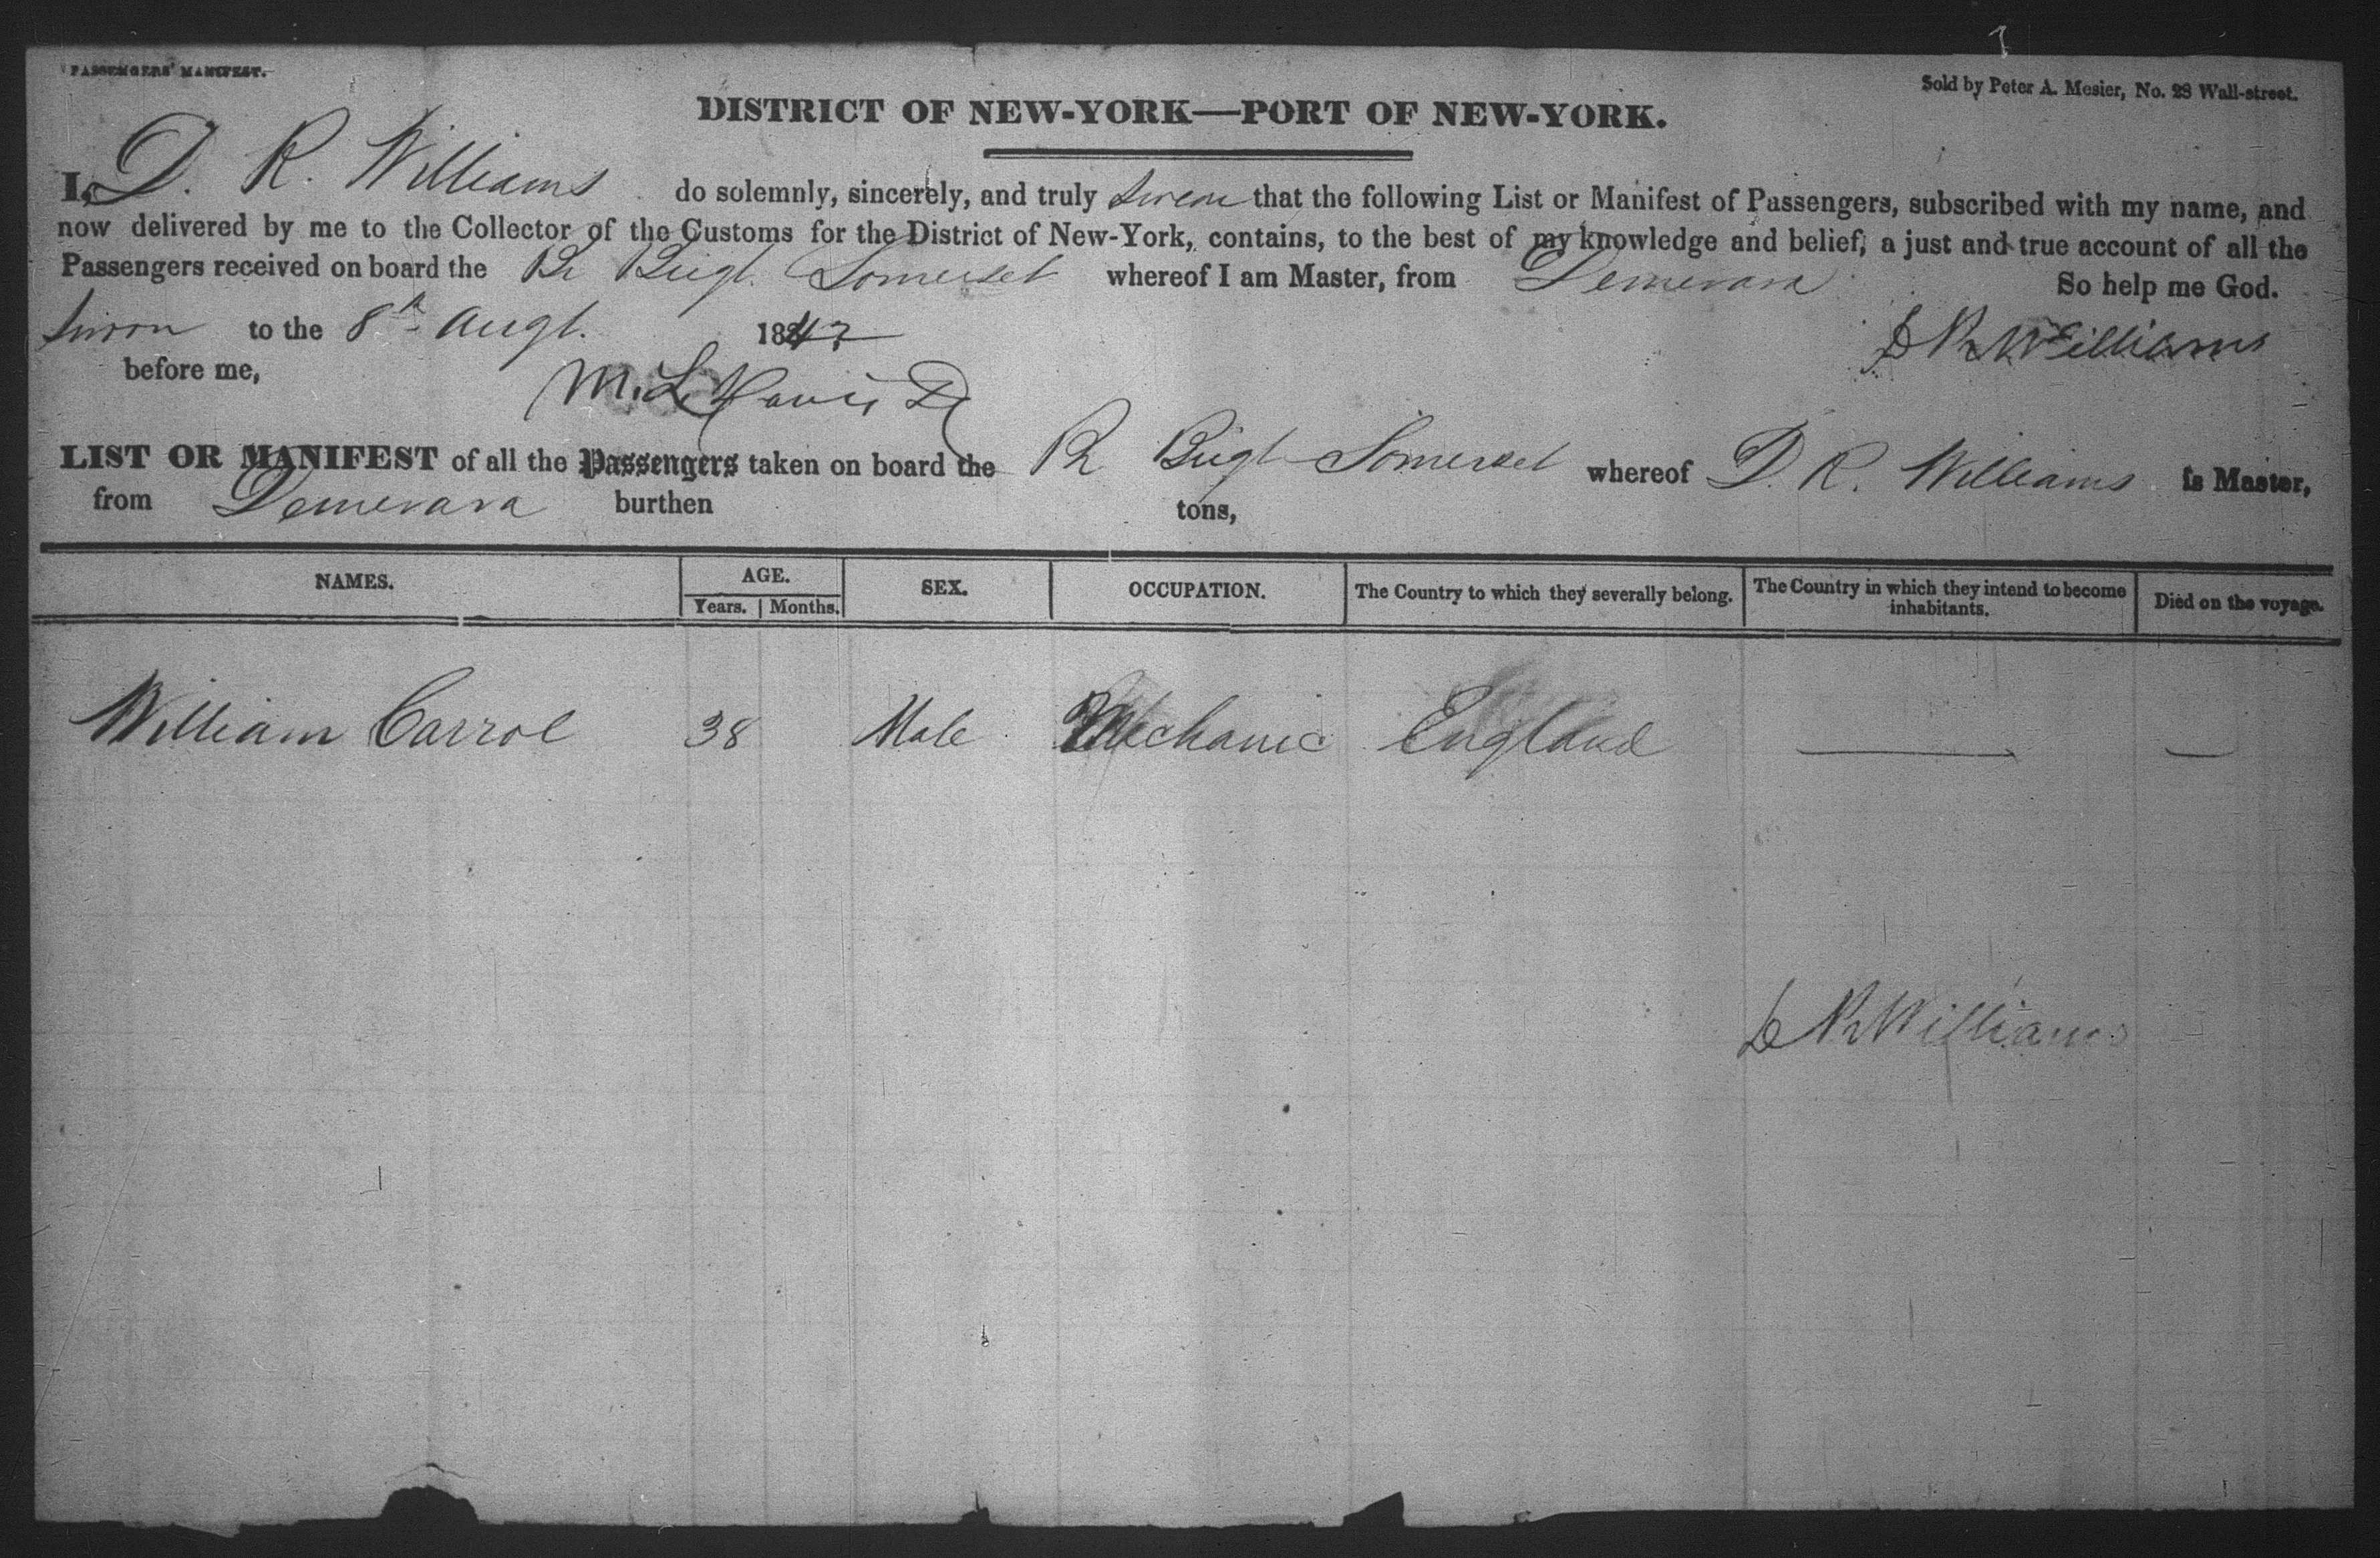 PASSENGERS' MANIFEST.
Sold by Peter A. Mesier, No. 28 Wall-street.
DISTRICT OF NEW-YORK—PORT OF NEW-YORK.
I, D. R. Williams do solemnly, sincerely, and truly swear that the following List or Manifest of Passengers, subscribed with my name, and
now delivered by me to the Collector of the Customs for the District of New-York, contains, to the best of my knowledge and belief, a just and true account of all the
Passengers received on board the Br Brigt. Somerset whereof I am Master, from Demerara So help me God.
Sworn to the 8th Augt. 1842 D R Williams
before me,
M. L. Davis
LIST OR MANIFEST of all the Passengers taken on board the Br Brigt Somerset whereof D. R. Williams is Master,
from Demerara burthen tons,
NAMES. AGE. SEX. OCCUPATION. The Country to which they severally belong. The Country in which they intend to become inhabitants. Died on the voyage.
Years. Months.
William Carrol 38 Male Mechanic England — —
D R Williams